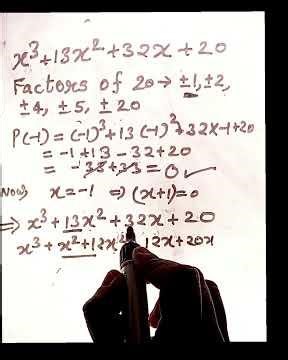 x³+13x²+32x+20
Factors of 20→ ±1, ±2,
±4, ±5, ±20
P(-1) = (-1)³+13(-1)²+32x-1+20
= -1+13-32+20
= -33+33 = 0 ✓
Now) x=-1 ⇒ (x+1)=0
⇒ x³+13x²+32x+20
x³+x²+12x² 12x+20x